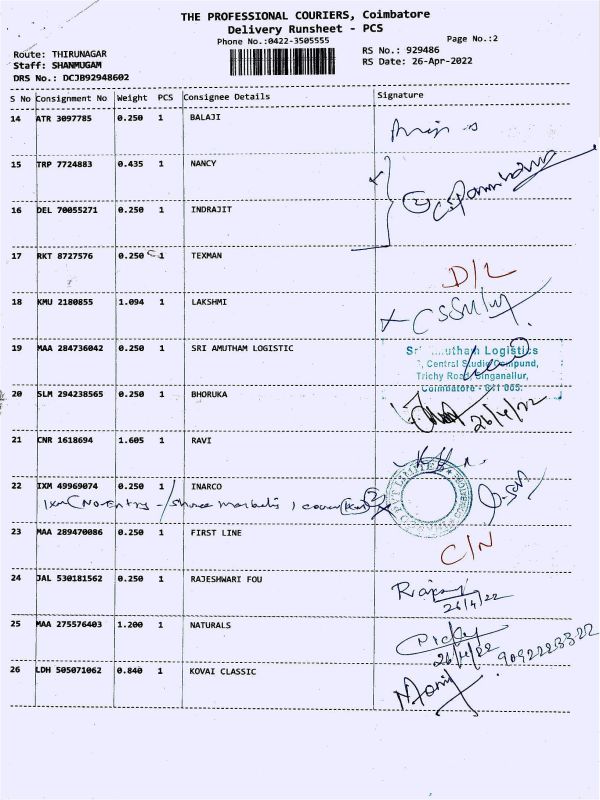 THE PROFESSIONAL COURIERS, Coimbatore
Delivery Runsheet - PCS
Phone No.:0422-3505555
Page No.:2
Route: THIRUNAGAR
RS No.: 929486
Staff: SHANMUGAM
RS Date: 26-Apr-2022
DRS No.: DCJB92948602
S No Consignment No Weight PCS Consignee Details Signature
14 ATR 3097785 0.250 1 BALAJI
15 TRP 7724883 0.435 1 NANCY
16 DEL 70055271 0.250 1 INDRAJIT
17 RKT 8727576 0.250 1 TEXMAN
D/L
18 KMU 2180855 1.094 1 LAKSHMI
19 MAA 284736042 0.250 1 SRI AMUTHAM LOGISTIC
Sri Amutham Logistics
Central Studio Compund,
Trichy Road, Singanallur,
Coimbatore - 641 005.
20 SLM 294238565 0.250 1 BHORUKA
26/4/22
21 CNR 1618694 1.605 1 RAVI
22 IXM 49969074 0.250 1 INARCO
PVT LIMITED
23 MAA 289470086 0.250 1 FIRST LINE
C/N
24 JAL 530181562 0.250 1 RAJESHWARI FOU
26/4/22
25 MAA 275576403 1.200 1 NATURALS
26/4/22 9092223322
26 LDH 505071062 0.840 1 KOVAI CLASSIC